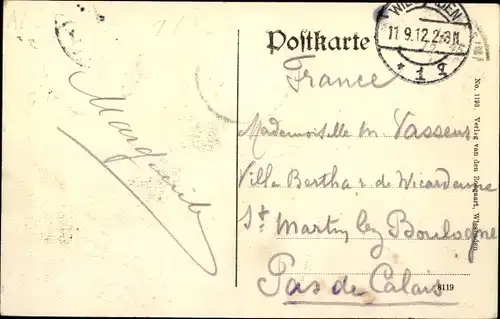 Marguerite
Postkarte
WIESBADEN
11.9.12.2-3N
* 1 g
France
Mademoiselle M Vasseur
Villa Bertha r de Wicardenne
St Martin lez Boulogne
Pas de Calais
No. 1193 Verlag van den Boogaart, Wiesbaden.
8119